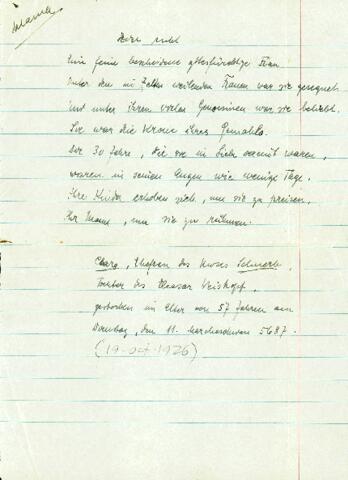 Mama
Hier ruht
Eine feine bescheidene gottesfürchtige Frau.
Unter den in Zelten weilenden Frauen war sie gesegnet
Und unter ihren vielen Genossinnen war sie beliebt.
Sie war die Krone ihres Gemahls.
Die 30 Jahre, die sie in Liebe vereint waren,
waren in seinen Augen wie wenige Tage.
Ihre Kinder erhoben sich, um sie zu preisen,
Ihr Mann, um sie zu rühmen.
Ehefrau des Moses Schnerb,
Tochter des Eleasar Weiskopf,
gestorben im Alter von 57 Jahren am
Dienstag, den 11. Marcheschwan 5687.
(19 Oct 1926)